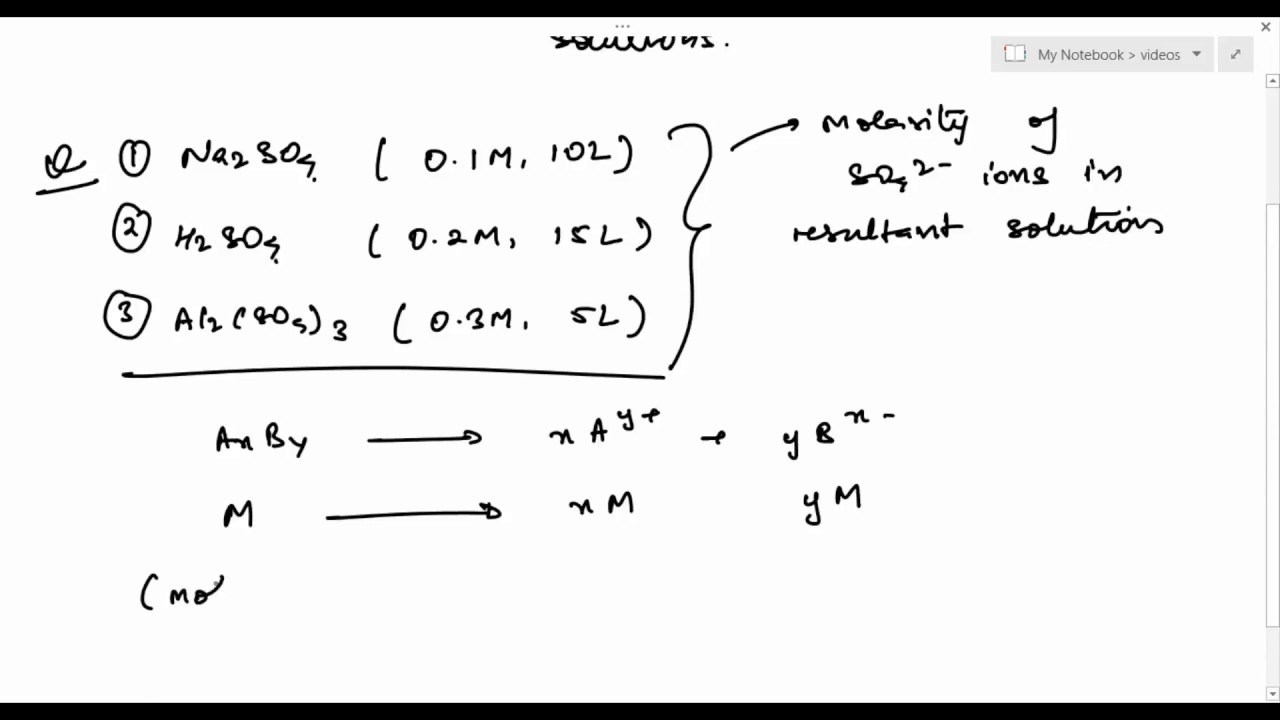 solutions.
My Notebook > videos
Q ① Na2SO4 ( 0.1M, 10L)
② H2SO4 ( 0.2M, 15L)
③ Al2(SO4)3 ( 0.3M, 5L)
→ Molarity of
SO4 2- ions in
resultant solutions
AxBy → x A y+ + y B x-
M → xM yM
(mo